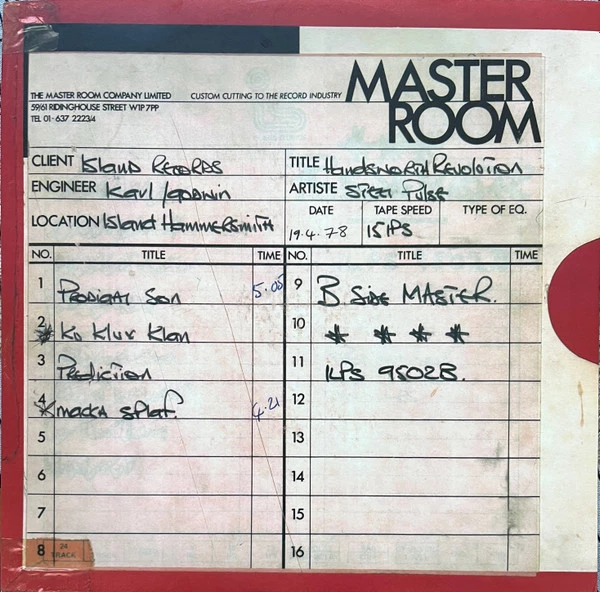 MASTER ROOM
THE MASTER ROOM COMPANY LIMITED CUSTOM CUTTING TO THE RECORD INDUSTRY
59/61 RIDINGHOUSE STREET W1P 7PP
TEL 01-637 2223/4
CLIENT Island Records TITLE Handsworth Revolution
ENGINEER Karl ARTISTE Steel Pulse
LOCATION Island Hammersmith DATE 19.4.78 TAPE SPEED 15 IPS TYPE OF EQ.
NO. TITLE TIME NO. TITLE TIME
1 Prodigal Son 5.05 9 B Side MASTER.
2 * Ku Klux Klan 10 * * * *
3 Prediction 11 ILPS 9502B.
4 * macka splaf. 4.21 12
5 13
6 14
7 15
8 24 TRACK 16